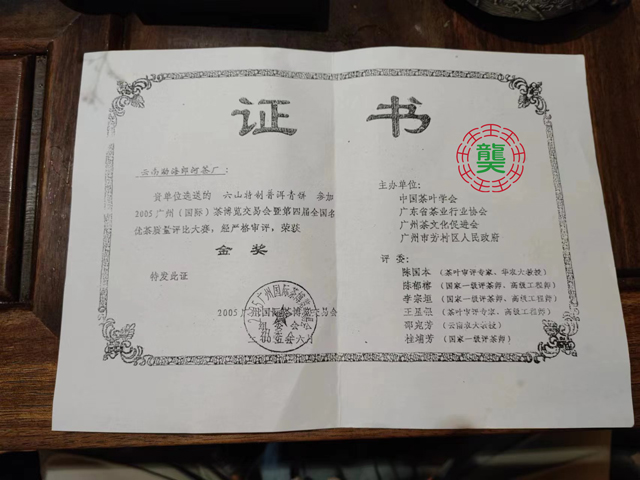 证书
云南勐海郎河茶厂：
贵单位选送的 六山特制普洱青饼 参加
2005广州（国际）茶博览交易会暨第四届全国名
优茶质量评比大赛，经严格审评，荣获
金奖
特发此证
2005广州国际茶博览交易会
组委会
二〇〇五年六月
龔
主办单位：
中国茶叶学会
广东省茶业行业协会
广州茶文化促进会
广州市芳村区人民政府
评委：
陈国本（茶叶审评专家、华农大教授）
陈郁榕（国家一级评茶师、高级工程师）
李宗垣（国家一级评茶师、高级工程师）
王星银（茶叶审评专家、高级工程师）
邵宛芳（云南农大教授）
桂埔芳（国家一级评茶师）